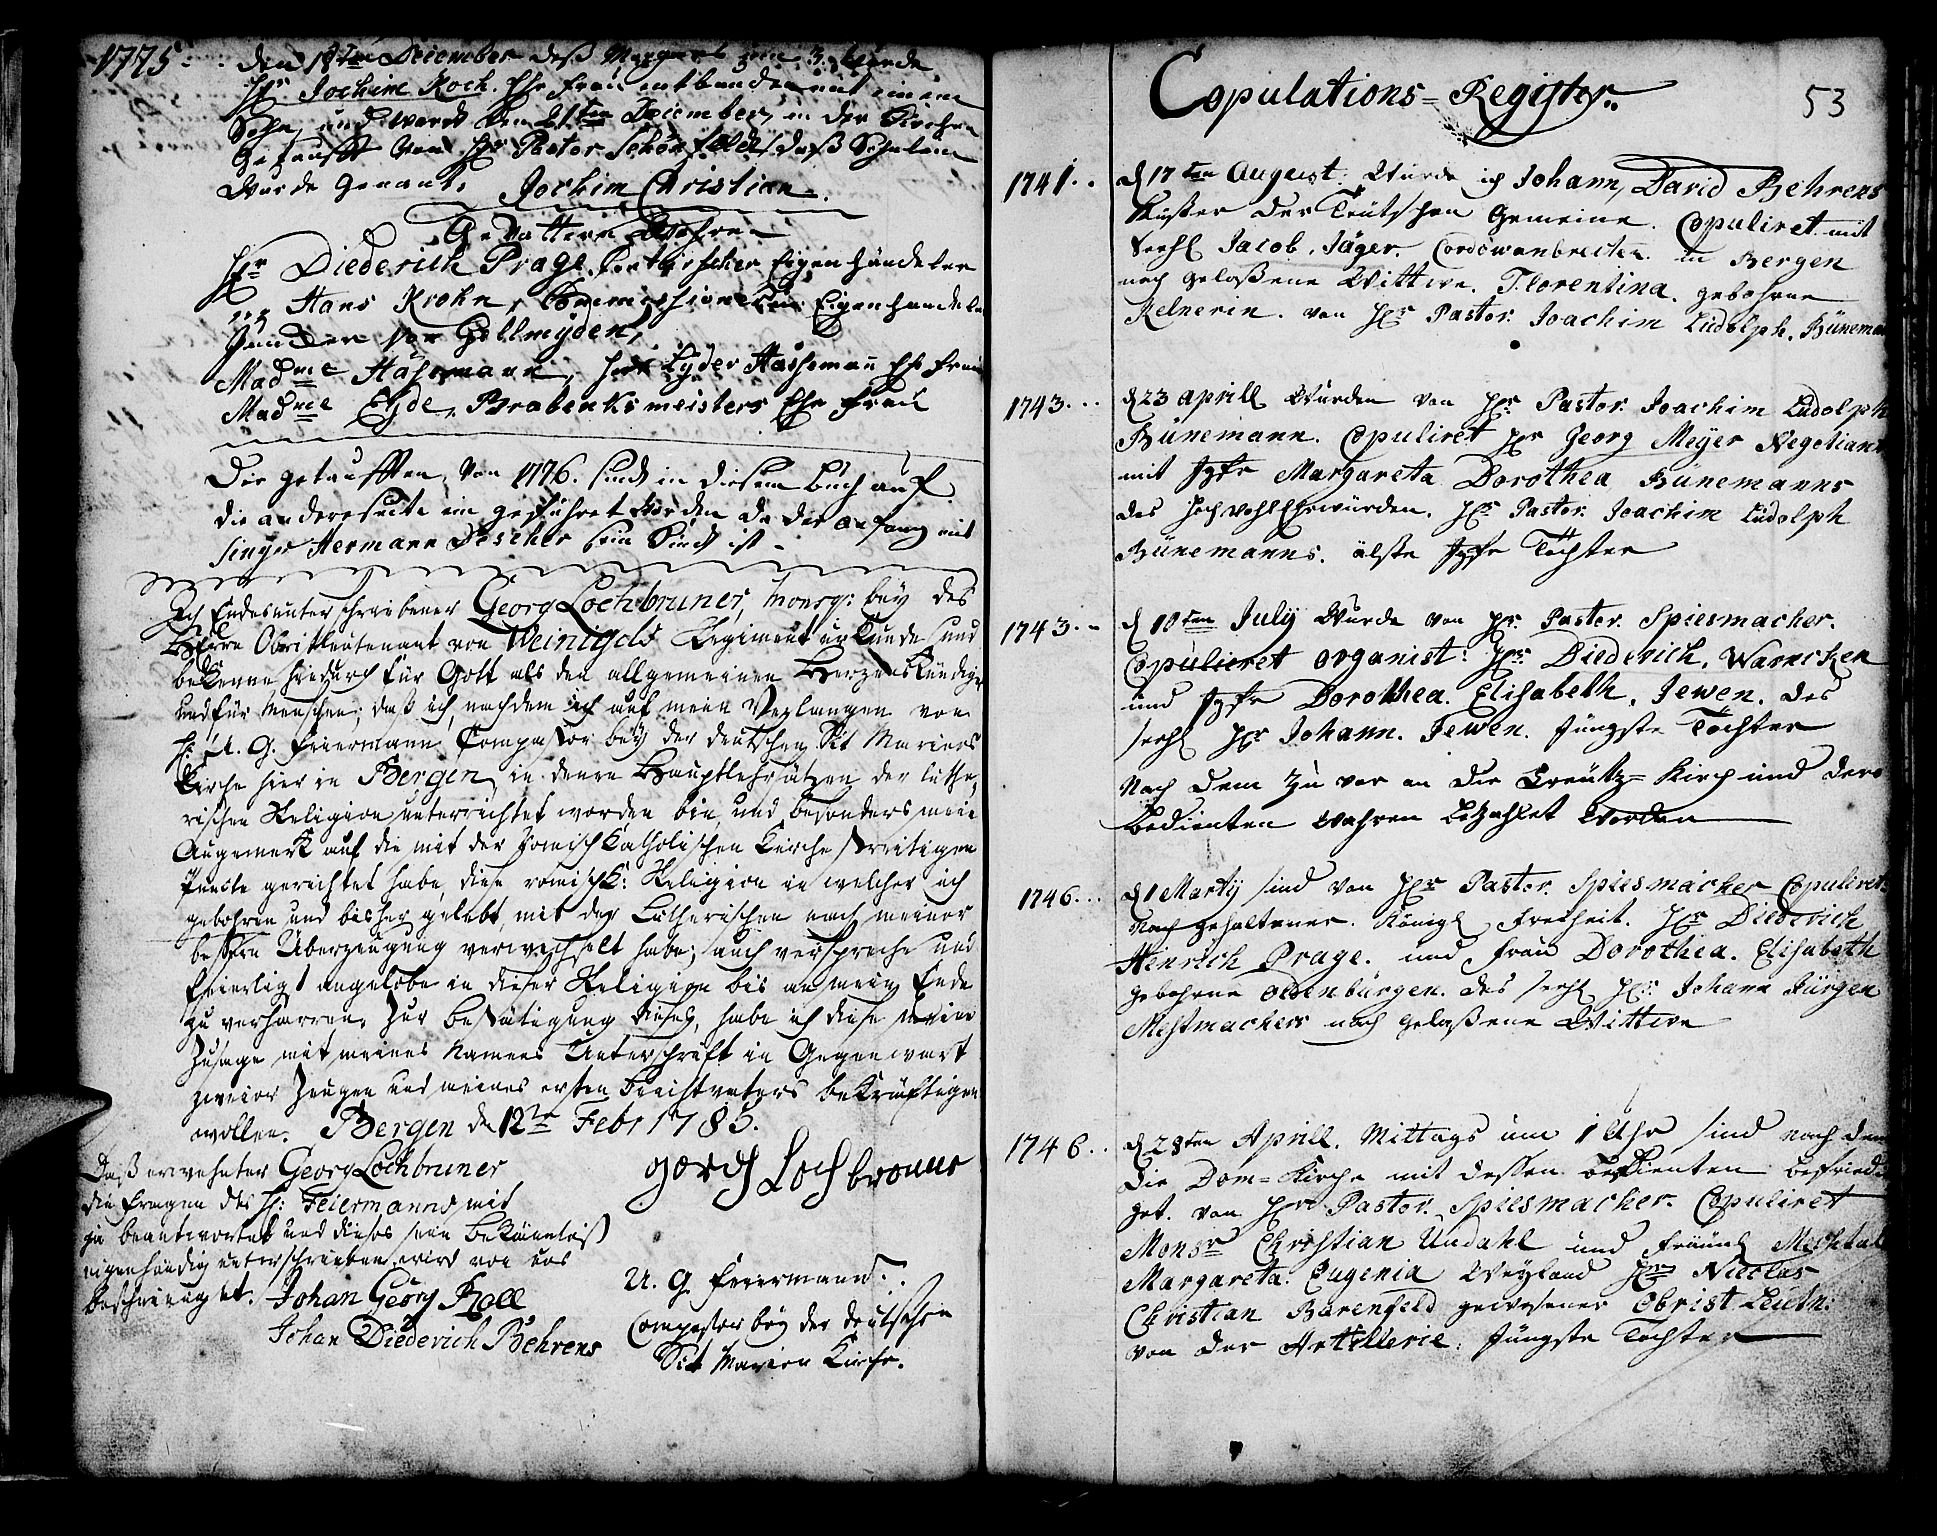 1775. den 18ten December deß Morgens um 3. wurde
Hr Jochim Koch. Ehe Frau entbunden mit einem
Sohn, und ward den 21ten December, in der Kirchen
Getaufft von Hr Pastor Schönfeldt, daß Sohnlein
Wurde Genant. Jochim Christian.
Gevattern Wahren
Hr Diederich Prage, Eigenhändeler
Hans Krohn, Eigenhandeler

Madme Hahsmann, Her Lyder Hahsmann Ehe frau
Madme Eyde. Brabenksmeisters Ehe frau
Die getaufften von 1776. sind in diesem Buch auf
die andere seite ein geführet worden da der anfang mit
Hermann Deschers sein Kind ist.
Ich Endesunterschriebener Georg Lochbruner, Mousq: bey des
Herrn Obristleutenant von Weinigels Regiment urkunde und
bekenne hiedurch für Gott als den allgemeinen Herzenskündiger
und für Menschen; daß ich, nachdem ich auf mein Verlangen von
H: U. G. Feiermann Compastor bey der deutschen Sct Marien
Kirche hier in Bergen in denen Hauptlehrsätzen der luthe,
rischen Religion unterrichtet worden bin, und besonders mein
Augemerk auf die mit der Römisch Catholischen Kirche streitigen
Puncte gerichtet habe, diese römisch K: Religion in welcher ich
gebohren und bisher gelebt, mit der Lutherischen nach meiner
bessern Überzeugung verwechselt habe; auch verspreche und
feierligst angelobe in dieser Religion bis an mein Ende
zu verharren. Zur Bestätigung dieses, habe ich diese meine
Zusage mit meines Namens Unterschrift in Gegenwart
zweier Zeugen und meines ersten Beichtvaters bekräftigen
wollen. Bergen d 12te Febr 1785.
Daß erwehnter Georg Lochbruner
die Fragen des H: Feiermanns mit
ja beantwortet und dieses sein Bekänntniß
eigenhändig unterschrieben, wird von uns
bescheiniget. Johan Georg Roll
Johan Diederich Behrens
gorch Lochbronner
U. G. Feiermann.
Compastor bey der deutschen
Sct Marien Kirche.
Copulations-Register.
53
1741. d 17ten August. Wurde ich Johann, David Behrens
Küster der Teütschen Gemeine. Copuliret mit
seehl Jacob. Jäger. Cordowanbreiter in Bergen
nach gelaßene Wittwe. Florentina. gebohrne
Kelnerin. von Hr Pastor. Joachim Ludolph. Bünemann
1743. d 23 Aprill Wurden von Hr Pastor. Joachim Ludolph
Bünemann. Copuliret Hr Georg Meyer Negotiant
mit Jgfr Margareta Dorothea Bünemanns
des HochwohlEhrwürden. Hr Pastor. Joachim Ludolph
Bünemanns. älste Jgfr Tochter
1743. d 10ten July Wurde von Hr. Pastor. Spiesmacher.
Copulieret Organist: Hr. Diederich. Warncken
und Jgfr Dorothea. Elisabeth. Jewen. des
seehl Hr Johann. Jewen. Jüngste Tochter
Nach dem zu vor an die Creutz-Kirch und ders
Bedienten Wahren bezahlet Worden
1746. d 1 Martij sind von Hr Pastor. Spiesmacher Copuliret.
Nach gehaltener. Königl Freiheit. Hr Diederich
Heinrich Prage. und Frau Dorothea. Elisabeth
gebohrne Oldenbürgen. des seehl Hr Johann Jürgen
Mestmachers nach gelaßene Wittwe
1746. d 28ten Aprill. Mittags um 1 Uhr sind nach dem
die Dom-Kirche mit dessen Bedienten befriedi
get. von Hr Pastor. Spiesmacher. Copuliret
Monsr Christian Undahl und Fräunl Mechtal
Margareta. Eugenia Weyland Hr Nicclas
Christian Barenfeld gewesener Obrist Leutn:
von der Artillerie. Jüngste Tochter